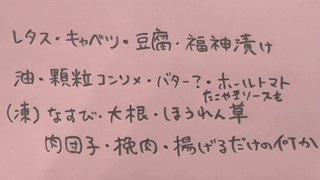 レタス・キャベツ・豆腐・福神漬け
油・顆粒コンソメ・バター?・ホールトマト
たこやきソースも
(凍)なすび・大根・ほうれん草
肉団子・挽肉・揚げるだけの何か